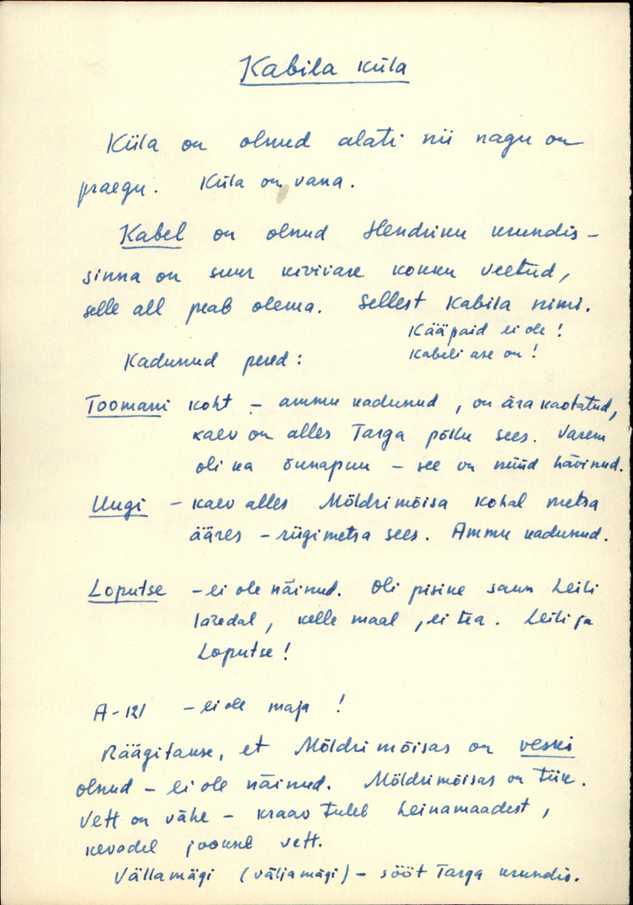 Kabila küla
Küla on olnud alati nii nagu on
praegu. Küla on vana.
Kabel on olnud Hendriku krundis -
sinna on suur kivivare kokku veetud,
selle all peab olema. Sellest Kabila nimi.
Kääpaid ei ole!
Kabeli ase on!
Kadunud pered:
Toomani koht - ammu kadunud, on ära kaotatud,
kaev on alles Targa põllu sees. Varem
oli ka õunapuu - see on nüüd hävinud.
Uugi - kaev alles Möldrimõisa kohal metsa
ääres - riigimetsa sees. Ammu kadunud.
Loputse - ei ole näinud. Oli pisine saun Leili
laredal, kelle maal, ei tea. Leili ja
Loputse!
A-121 - ei ole maja!
Räägitakse, et Möldrimõisas on veski
olnud - ei ole näinud. Möldrimõisas on tiik.
Vett on vähe - kraav tuleb heinamaadest,
kevadel jookseb vett.
Vällamägi (väljamägi) - sööt Targa krundis.